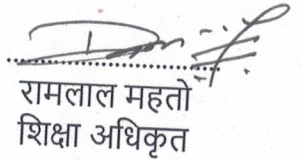 रामलाल महतो
शिक्षा अधिकृत